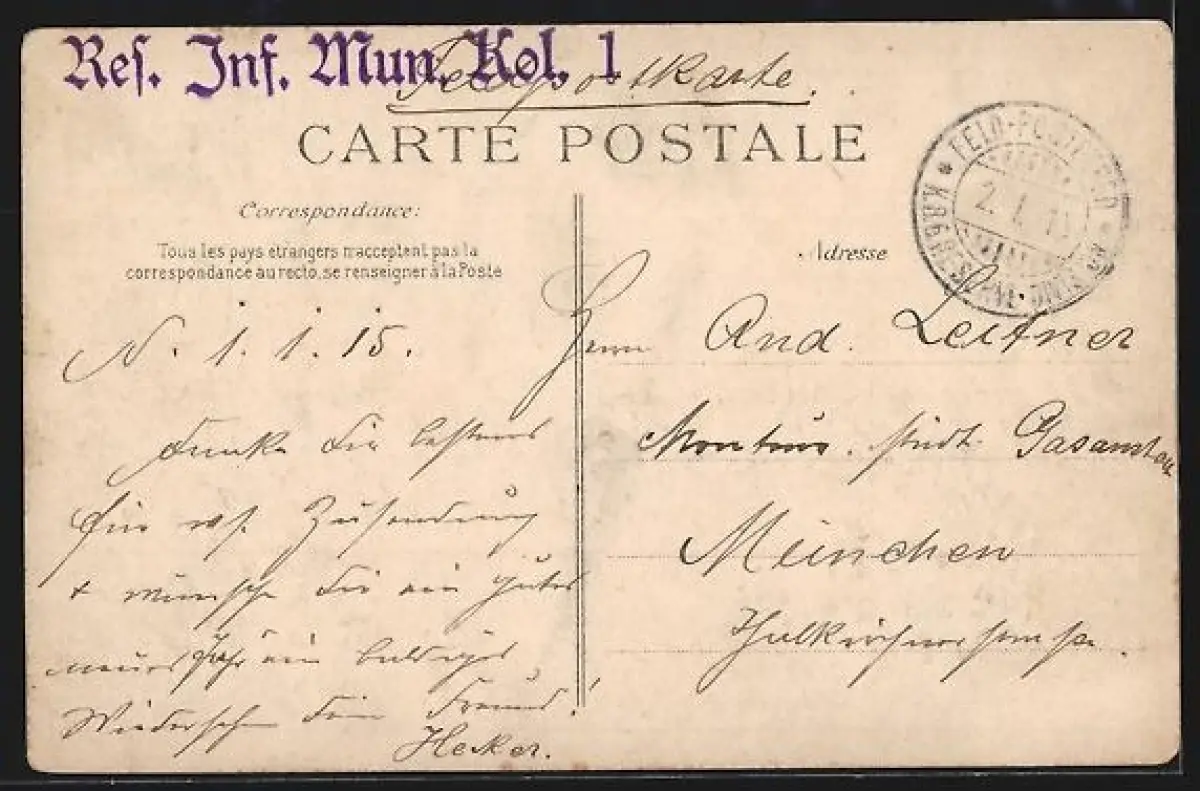 Res. Inf. Mun. Kol. 1
Feldpostkarte.
CARTE POSTALE
Correspondance:
Tous les pays étrangers n'acceptent pas la
correspondance au recto, se renseigner à la Poste
Adresse
FELD-POSTEXP. DER
2. 1. 15
RESERVE-DIVISION
N. 1. 1. 15.
Danke Dir bestens
für rsp. Zusendung
+ wünsche Dir ein gutes
neues Jahr ein baldiges
Wiedersehn Dein Freund!
Hecker.
Herrn And. Leitner
Monteur. städt. Gasanstalt
München
Thalkirchnerstrasse.